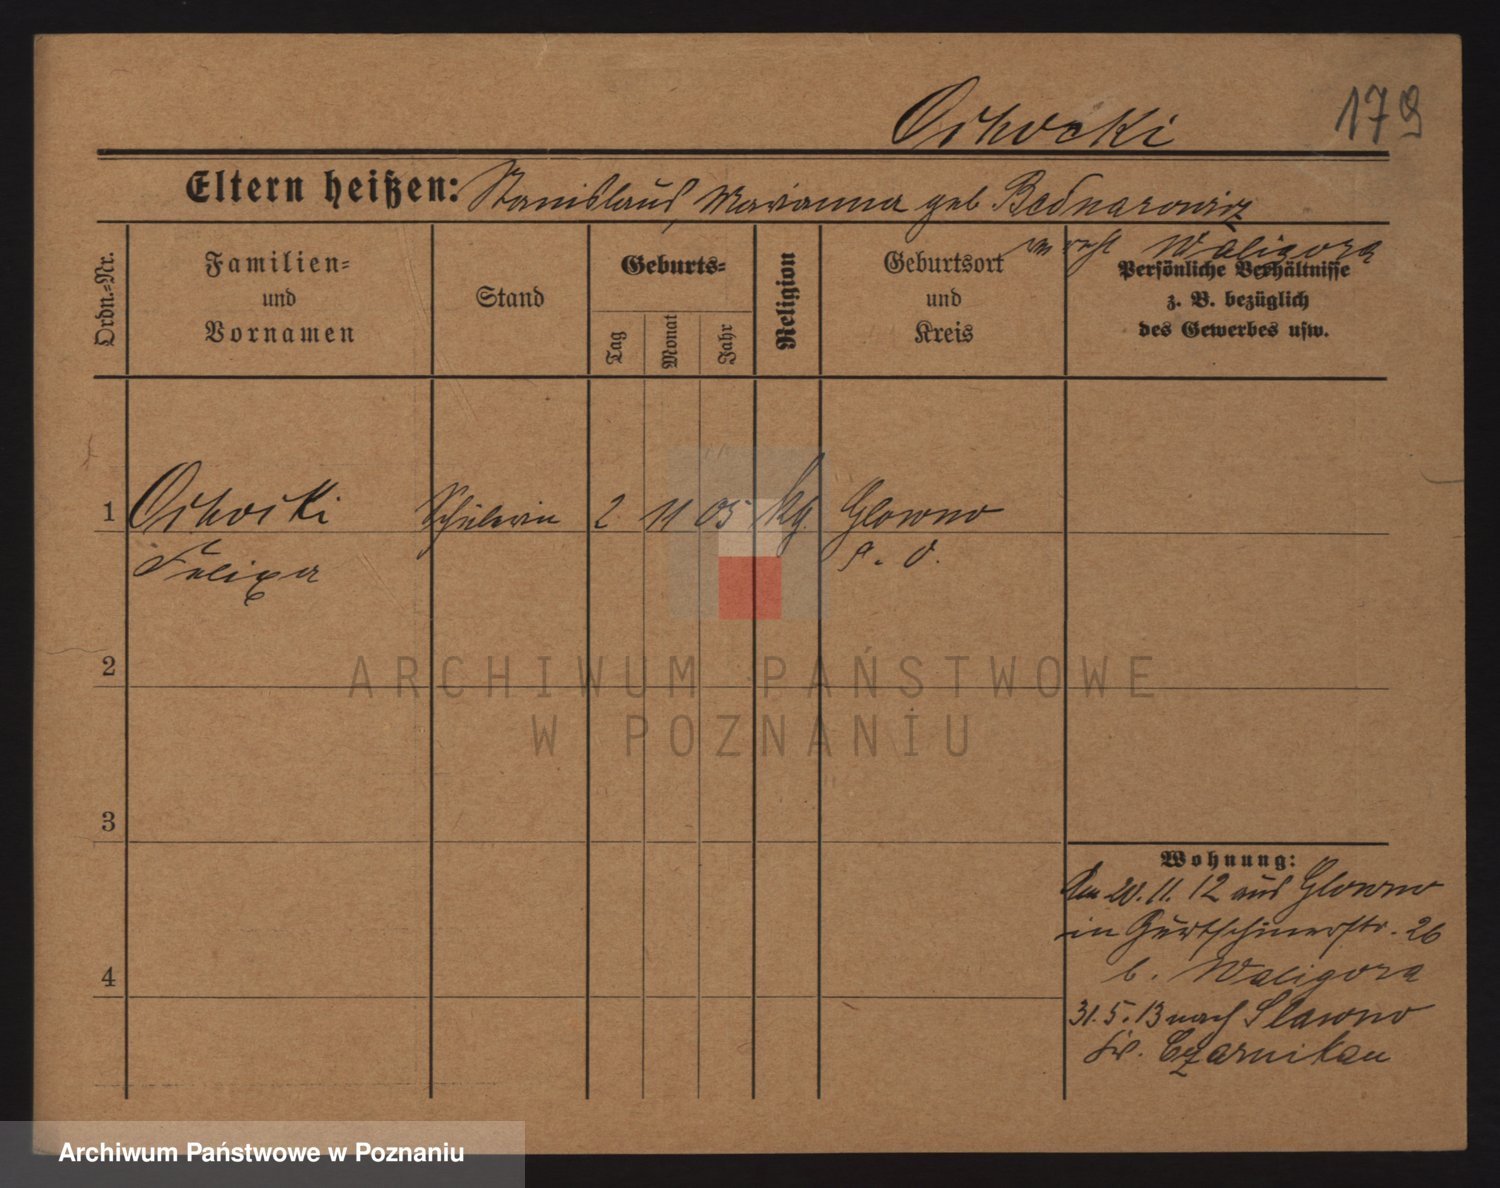 Ochocki 179
Eltern heißen: Stanislaus, Marianna geb Bednarowicz
Waligora
Ordn.-Nr.
Familien-
und
Vornamen
Stand
Geburts-
Tag
Monat
Jahr
Religion
Geburtsort
und
Kreis
Persönliche Verhältnisse
z. B. bezüglich
des Gewerbes usw.
1 Ochocki Schülerin 2 11 05 kg. Glowno
Felixa P. O.
2
ARCHIWUM PAŃSTWOWE
W POZNANIU
3
Wohnung:
20.11.12 aus Glowno
in Gurtschinerstr. 26
b. Waligora
4
31.5.13 nach Slawno
Kr. Czarnikau
Archiwum Państwowe w Poznaniu